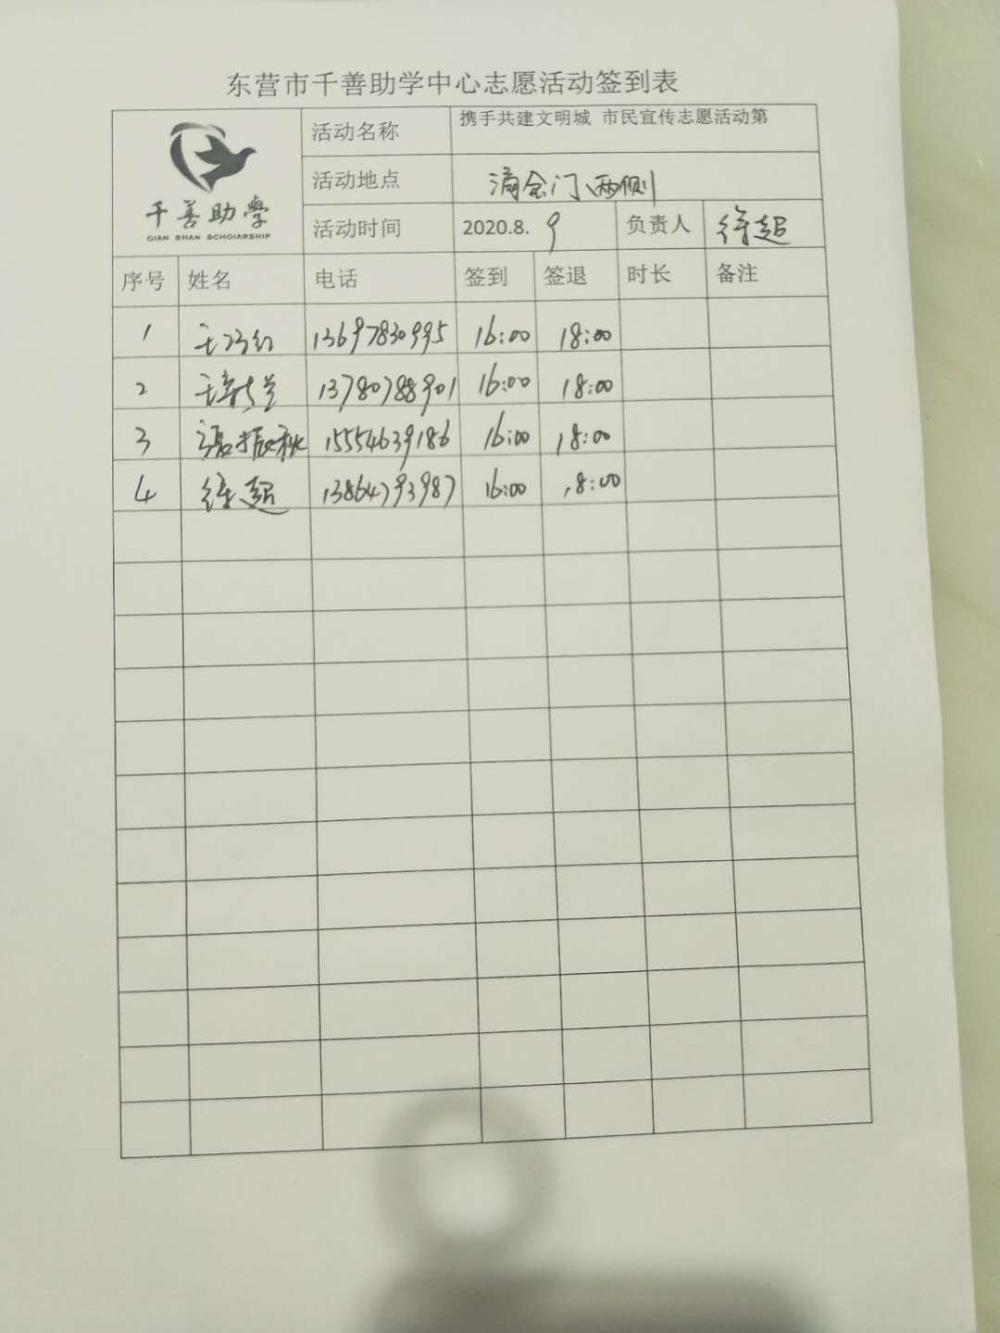 东营市千善助学中心志愿活动签到表
千善助學
QIAN SHAN SCHOIARSHIP
活动名称 携手共建文明城 市民宣传志愿活动第
活动地点 门两侧
活动时间 2020.8.9 负责人 徐超
序号 姓名 电话 签到 签退 时长 备注
1 王巧红 13697830995 16:00 18:00
2 13780788901 16:00 18:00
3 张振秋 15554639186 16:00 18:00
4 徐超 13864793987 16:00 18:00